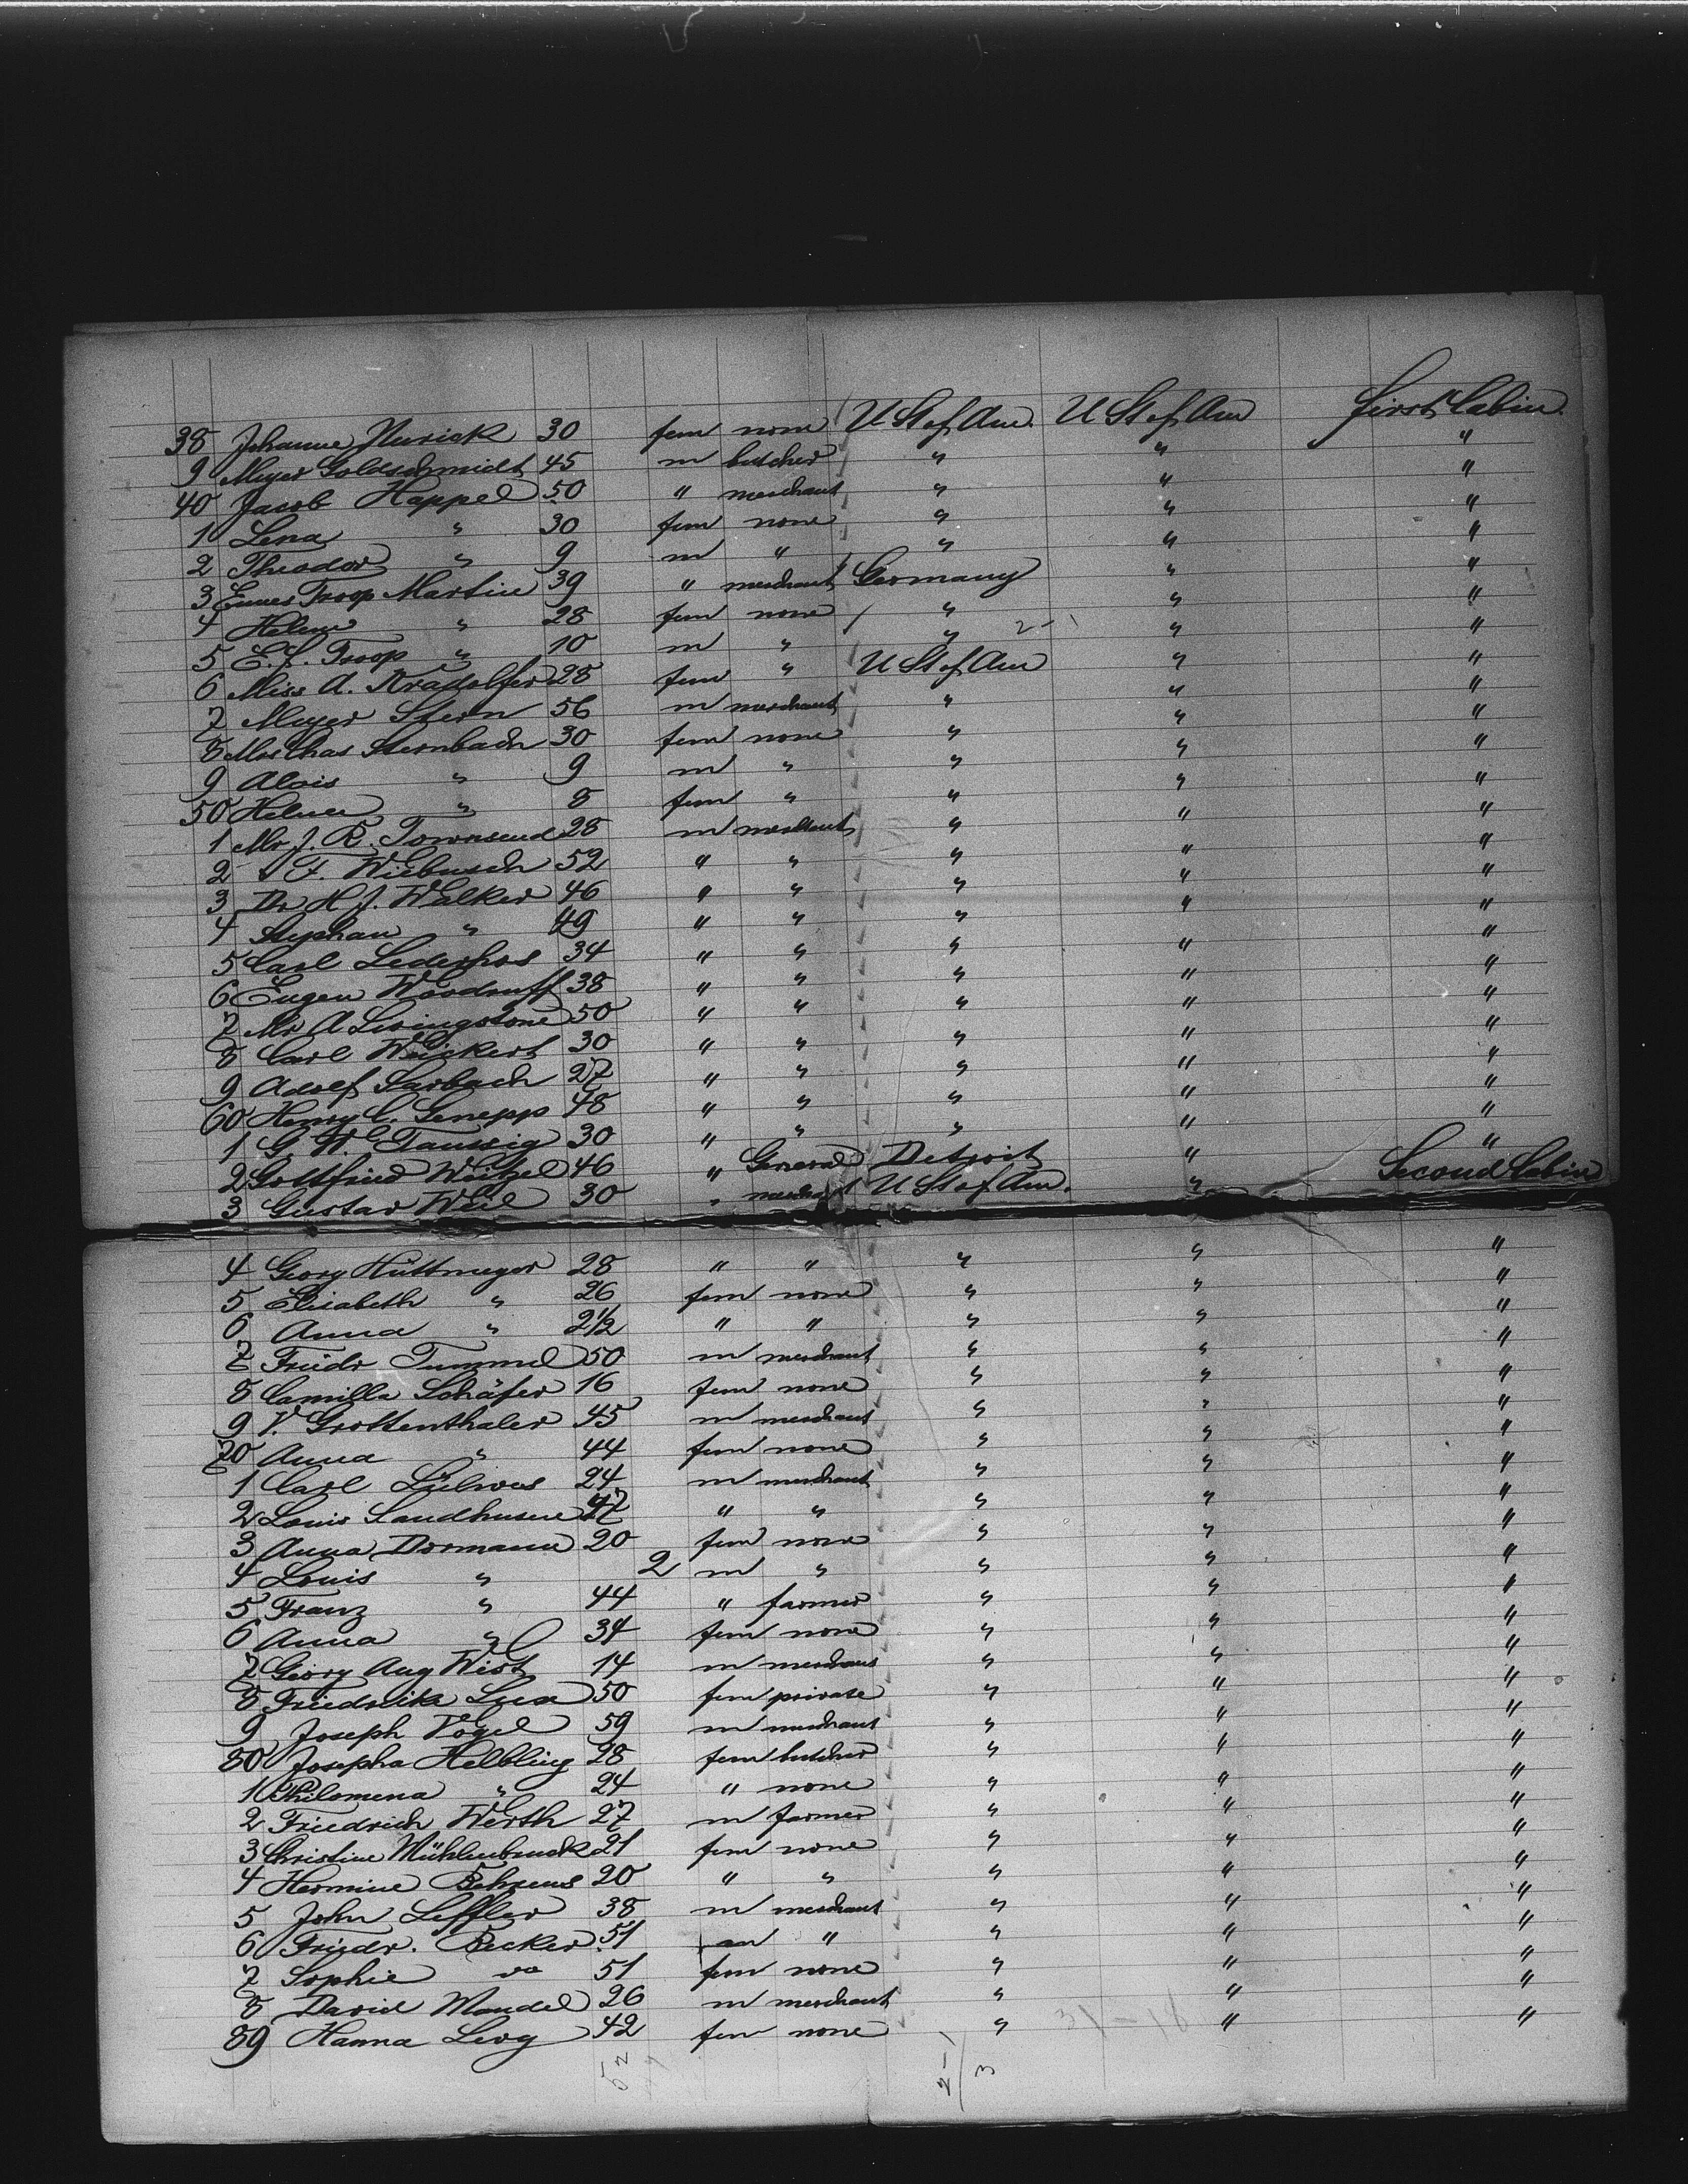 38 Johanne 30 fem none U St of Am. U St of Am first Cabin.
9 Meyer Goldschmidt 45 m butcher " " "
40 Jacob Happel 50 " merchant " " "
1 Lena " 30 fem none " " "
2 Theodor " 9 m " " " "
3 Troop Martin 39 " merchant Germany " "
4 Helene " 28 fem none " " "
5 E. J. Troop " 10 m " " 2- " "
6 Miss A. Kradolfer 28 fem " U St of Am " "
7 Meyer Stern 56 m merchant " " "
8 Mrs Chas Sternbach 30 fem none " " "
9 Alois " 9 m " " " "
50 Helene " 8 fem " " " "
1 Mr J. R. Townsend 28 m merchant " " "
2 " F. Wiebusch 52 " " " " "
3 Dr H. J. Walker 46 " " " " "
4 Stephan " 49 " " " " "
5 Carl Lederhos 34 " " " " "
6 Eugen Woodruff 38 " " " " "
7 Mr A Livingstone 50 " " " " "
8 Carl Weickert 30 " " " " "
9 Adolf Sarbach 27 " " " " "
60 Henry C. Genepp 48 " " " " "
1 G. W. Taussig 30 " " " " "
2 Gottfried Weitzel 46 " General Detroit " "
3 Gustav Weil 30 " merchant U St of Am. " Second Cabin
4 Georg Hüttmeyer 28 " " " " "
5 Elisabeth " 26 fem none " " "
6 Anna " 2½ " " " " "
7 Friedr Tummel 50 m merchant " " "
8 Camilla Schäfer 16 fem none " " "
9 V. Grottenthaler 45 m merchant " " "
70 Anna " 44 fem none " " "
1 Carl 24 m merchant " " "
2 Louis Landhusen 47 " " " " "
3 Anna Dormann 20 fem none " " "
4 Louis " 2 m " " " "
5 Franz " 44 " farmer " " "
6 Anna " 34 fem none " " "
7 Georg Aug Wist 14 m merchant " " "
8 Friedricke Lux 50 fem private " " "
9 Joseph Vogel 59 m merchant " " "
80 Josepha Helbling 28 fem butcher " " "
1 Philomena " 24 " none " " "
2 Friedrich Werth 27 m farmer " " "
3 Christine Mühlenbruck 21 fem none " " "
4 Hermine Behrens 20 " " " " "
5 John Leffler 38 m merchant " " "
6 Friedr. Becker 51 m " " " "
7 Sophie do 51 fem none " " "
8 David Mandel 26 m merchant " " "
89 Hanna Levy 42 fem none " " "
52 2-1 3